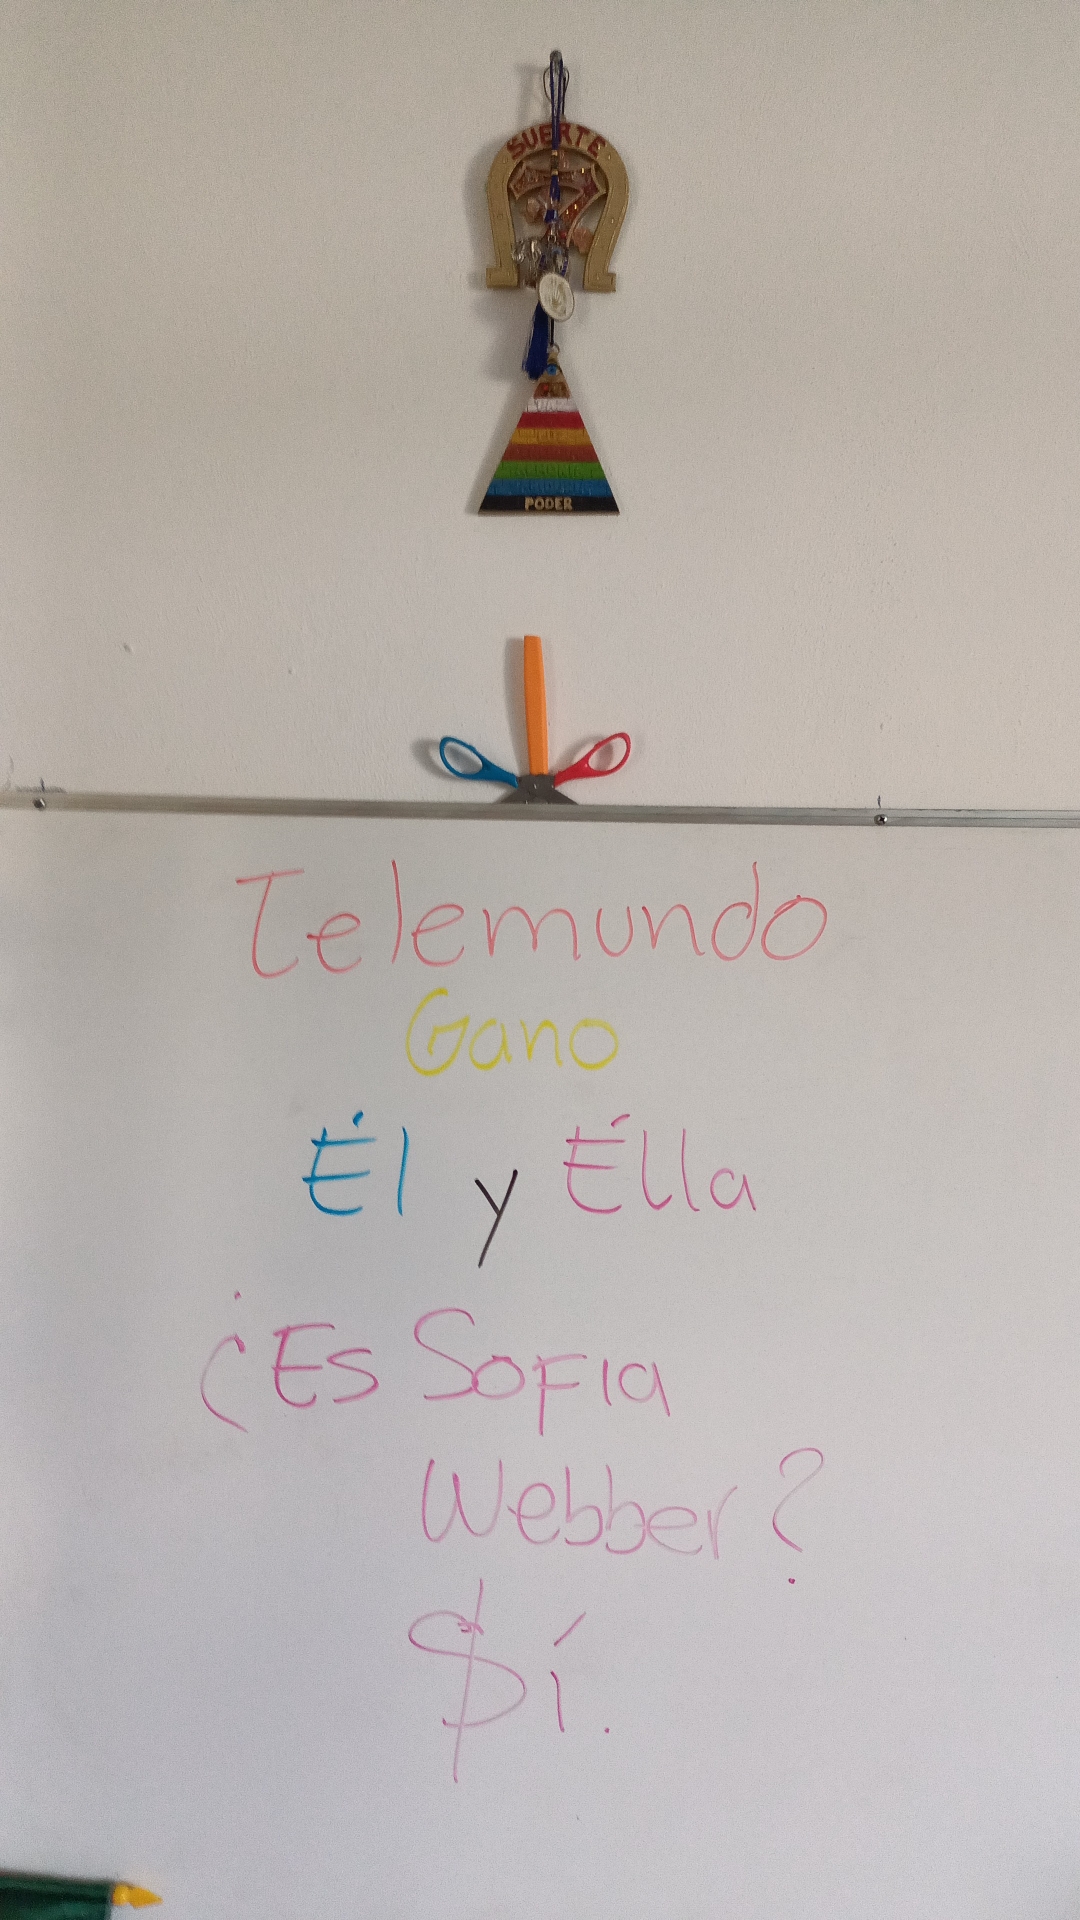 SUERTE
PODER
Telemundo
Gano
Él y Élla
¿Es Sofia
Webber?
$í.